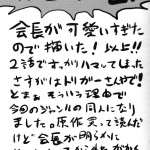 会長が可愛いすぎた
ので描いた!以上!!
2話です。ガリハマッてしまった
さすがはトリガーさんやで!
とまぁ そういう理由で
今回のジャンルの同人になり
ました。原作買って読んだ
けど会長が明らかに